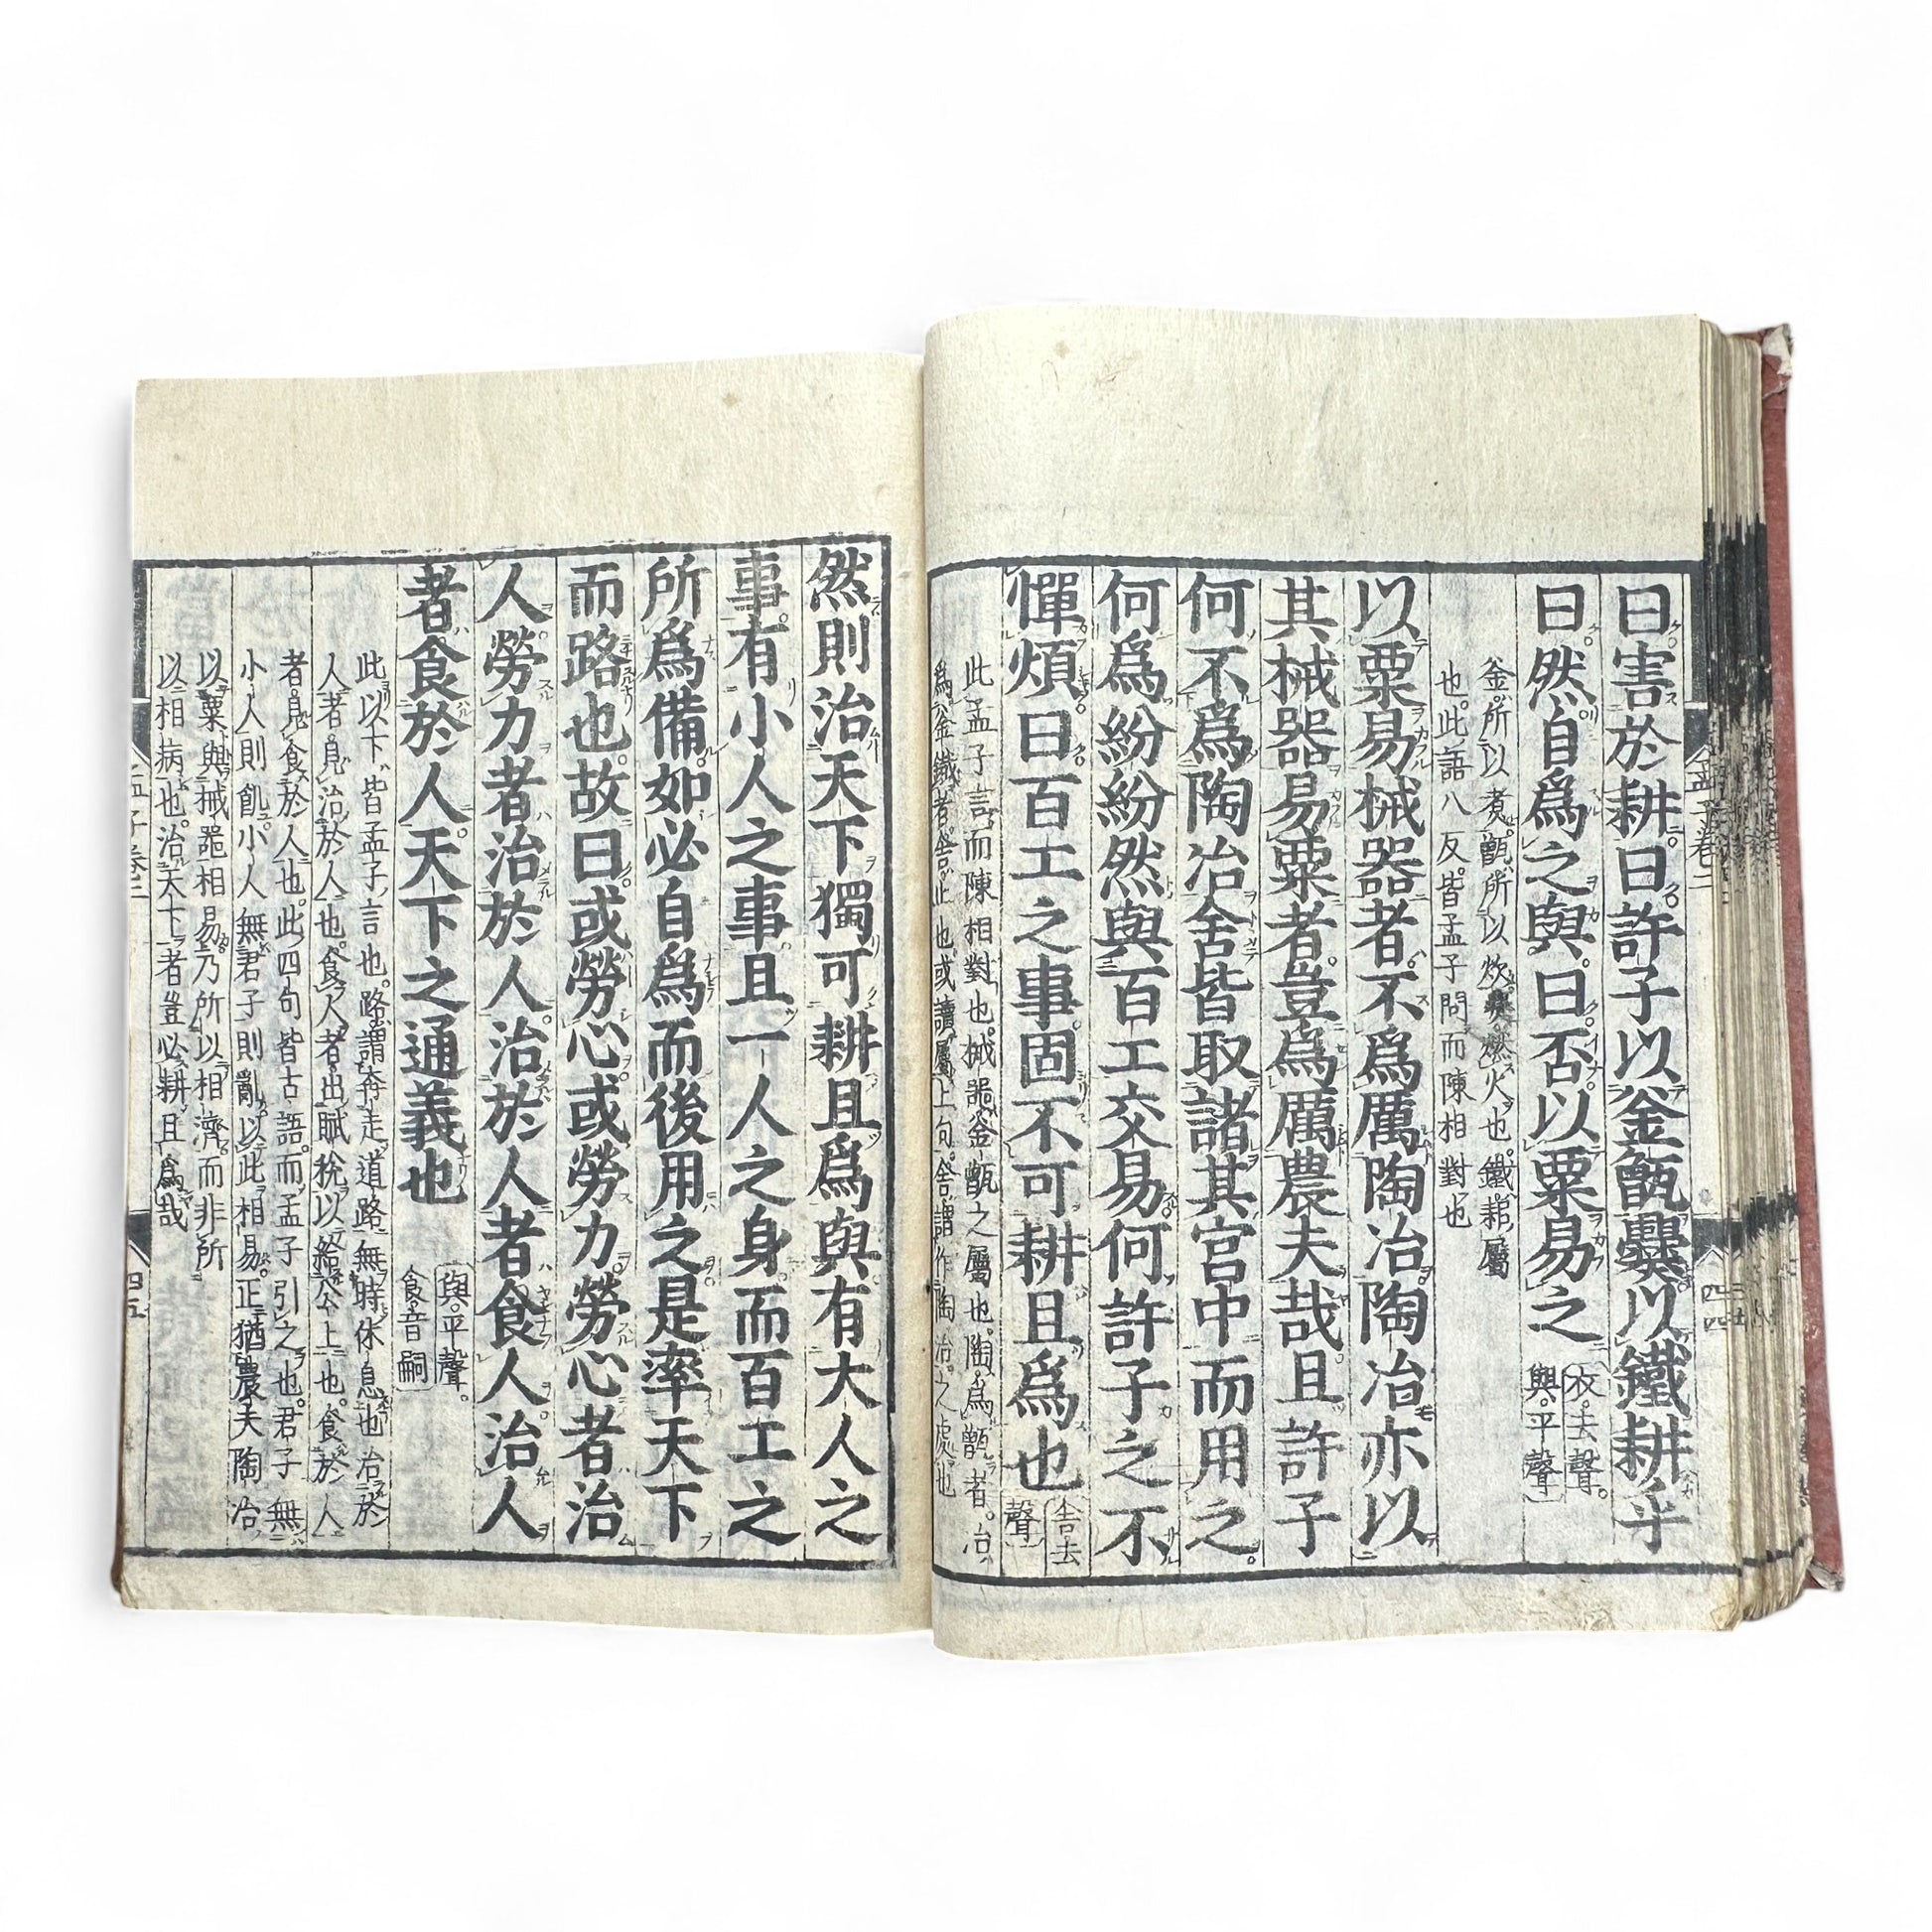 曰害於耕曰許子以釜甑爨以鐵耕乎
曰然自爲之與曰否以粟易之
衣去聲。
與平聲
釜所以煮甑所以炊爨燃火也鐵耜屬
也此語八反皆孟子問而陳相對也
以粟易械器者不爲厲陶冶陶冶亦以
其械器易粟者豈爲厲農夫哉且許子
何不爲陶冶舍皆取諸其宮中而用之
何爲紛紛然與百工交易何許子之不
憚煩曰百工之事固不可耕且爲也
舍去
聲
此孟子言而陳相對也械器釜甑之屬也陶爲甑者。冶
爲釜鐵者舍止也或讀屬上句舍謂作陶冶之處也
孟子卷二
四四
然則治天下獨可耕且爲與有大人之
事有小人之事且一人之身而百工之
所爲備如必自爲而後用之是率天下
而路也故曰或勞心或勞力勞心者治
人勞力者治於人治於人者食人治人
者食於人天下之通義也
與平聲。
食音嗣
此以下皆孟子言也路謂奔走道路無時休息也治於
人者見治於人也食人者出賦稅以給公上也食於人
者見食於人也此四句皆古語而孟子引之也君子無
小人則飢小人無君子則亂以此相易正猶農夫陶冶
以粟與械器相易乃所以相濟而非所
以相病也治天下者豈必耕且爲哉
孟子卷二
四五